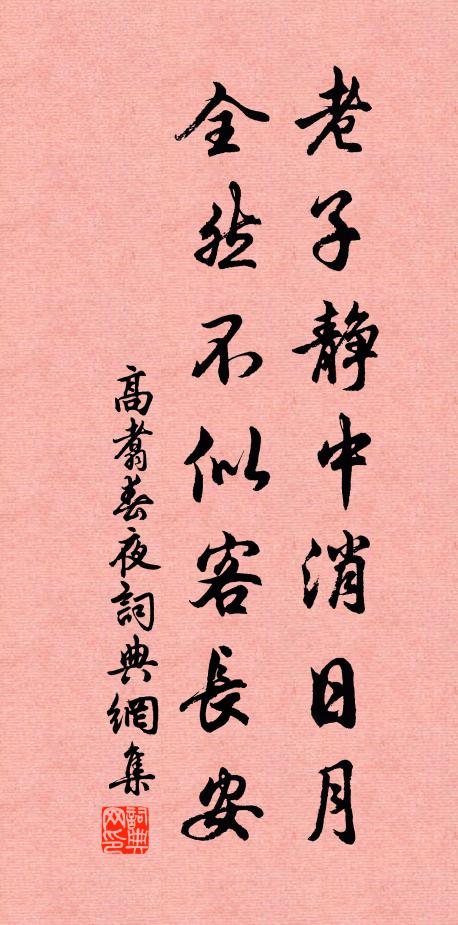 老子静中消日月
全然不似客長安
高翥春夜詞典網集
詞典网印